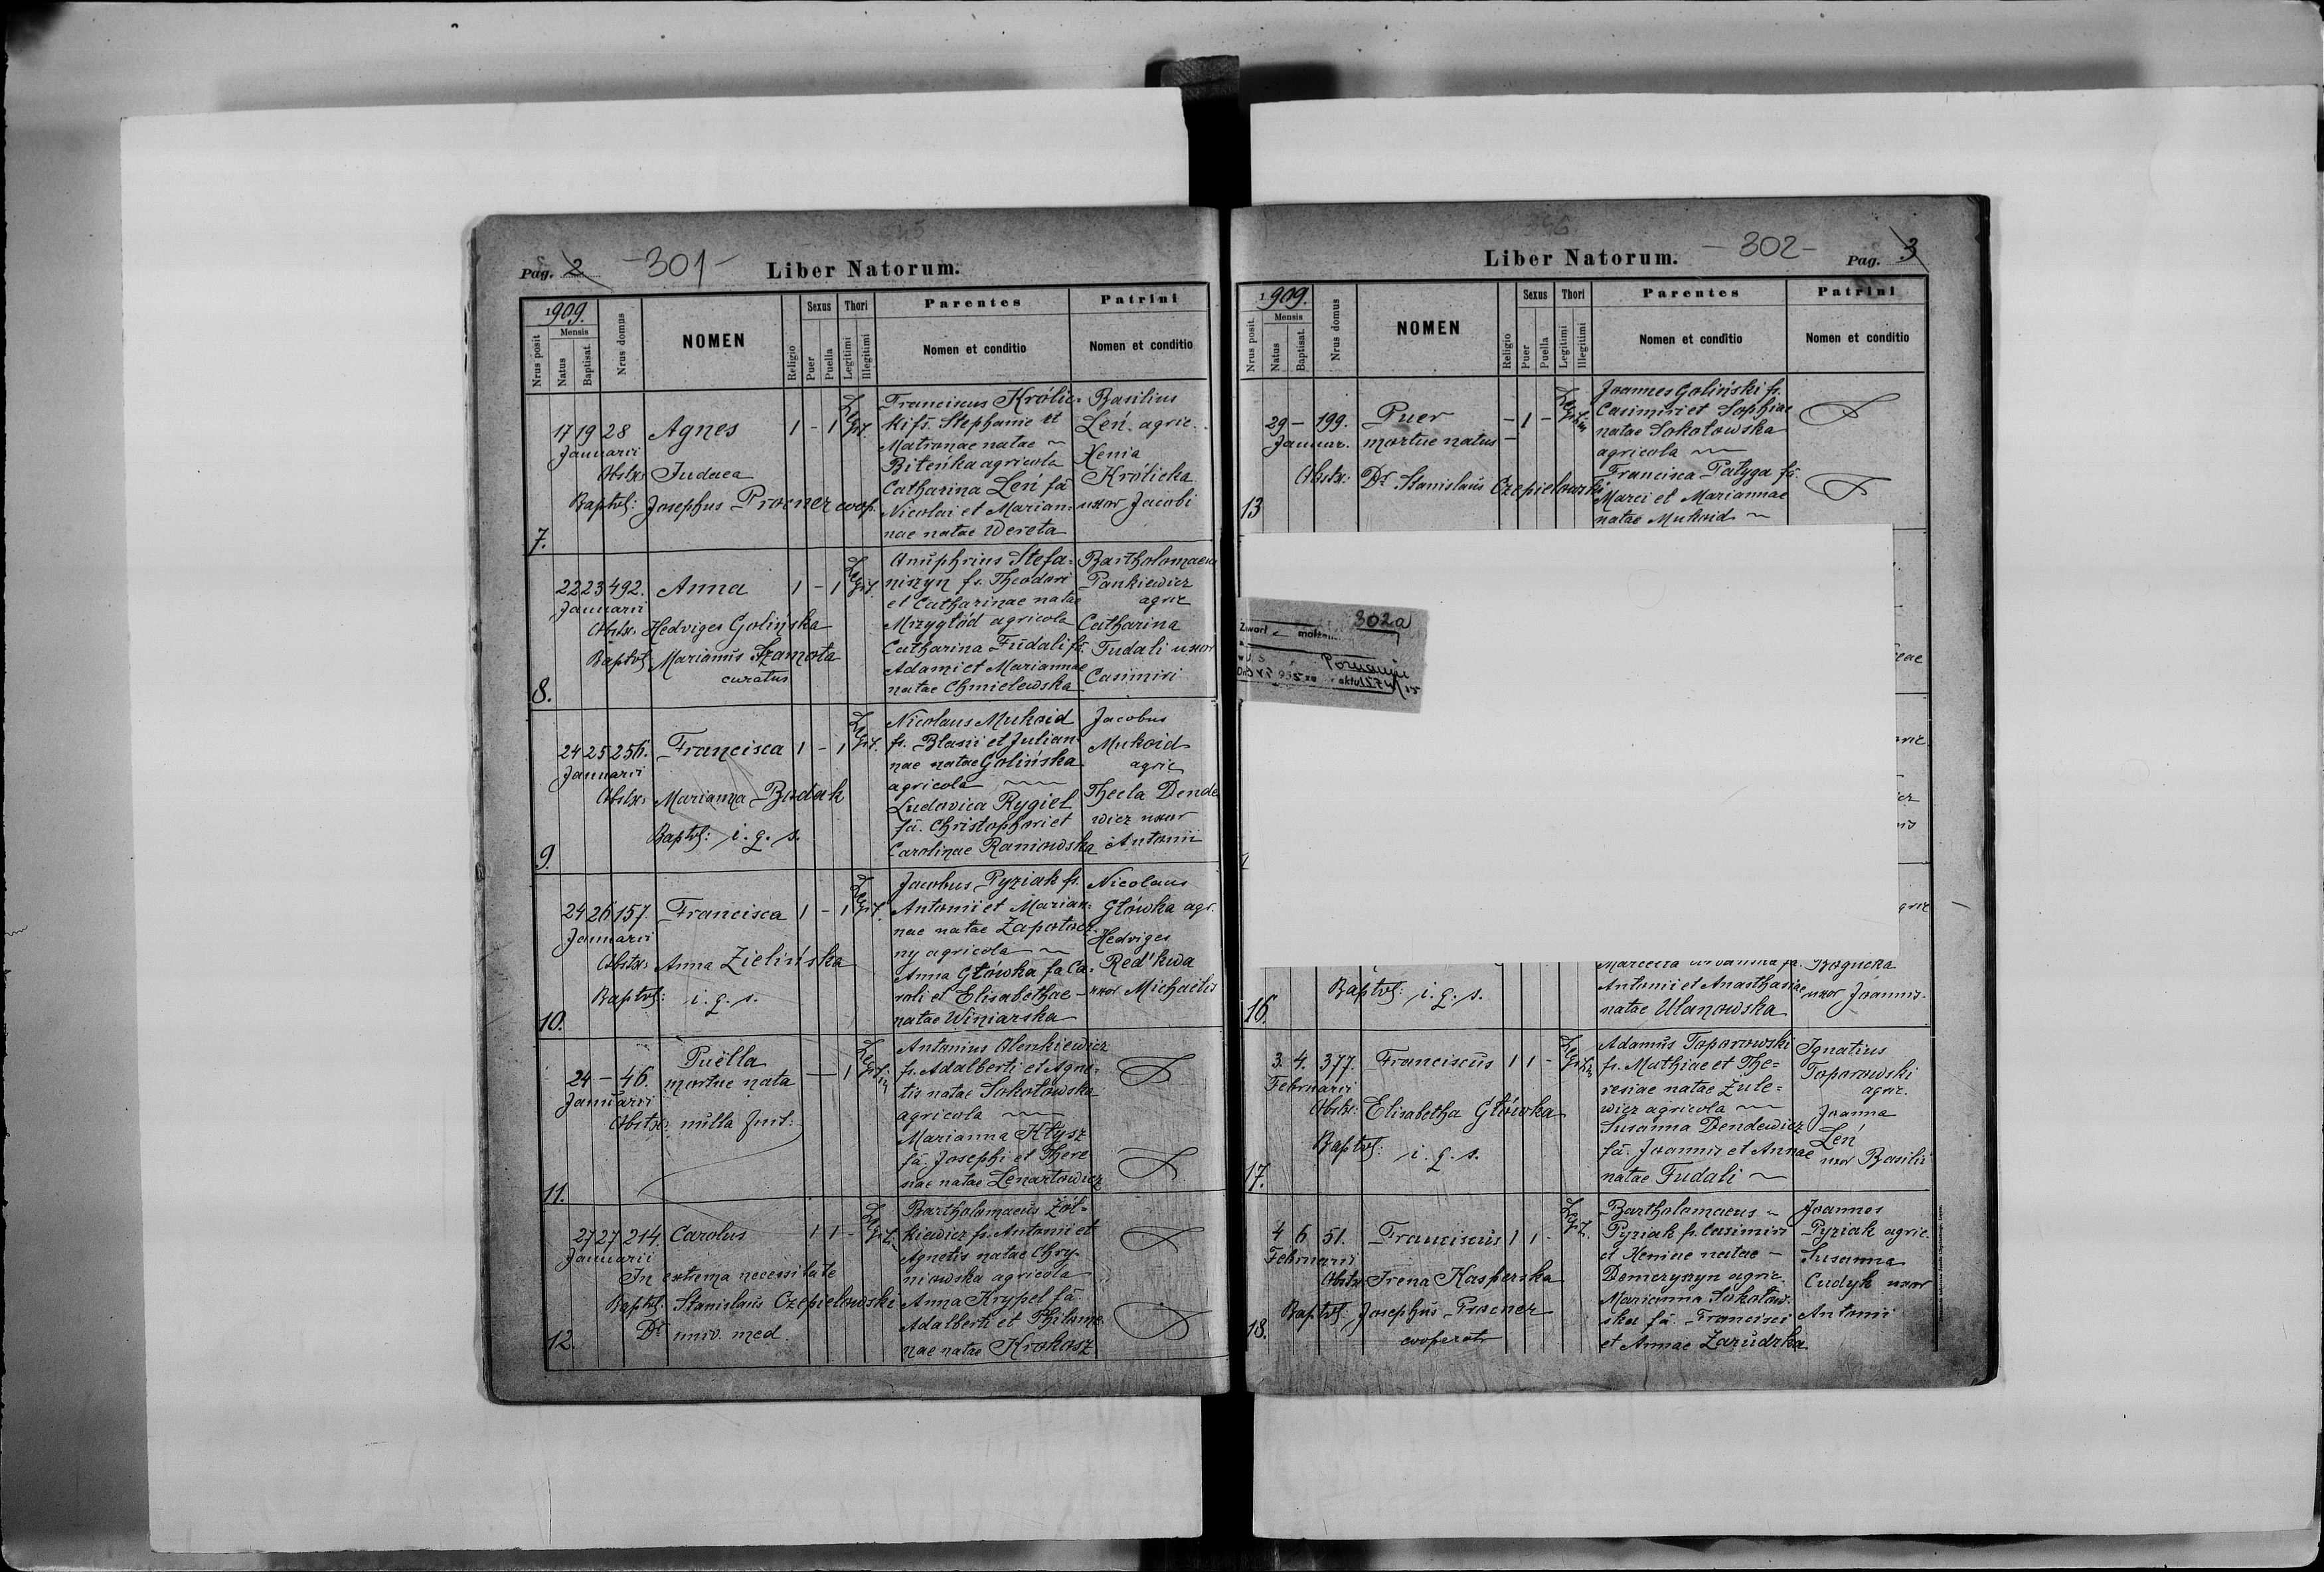 Pag. 2 -301- Liber Natorum.
1909.
Mensis
Nrus posit
Natus
Baptisat.
Nrus domus
NOMEN
Religio
Sexus
Puer
Puella
Thori
Legitimi
Illegitimi
Parentes
Nomen et conditio
Patrini
Nomen et conditio
7.
17 19 28 Agnes 1 - 1 Legit.
Januarii
Obstx: Judaea
Baptvs: Josephus Procner coop.
Franciscus Królic=
ki fs. Stephanie et
Matronae natae
Biteńka agricola
Catharina Leń fa
Nicolai et Marian=
nae natae Wereta
Basilius
Leń. agric.
Xenia
Królicka
uxor Jacobi
8.
22 23 492. Anna 1 - 1 Legit.
Januarii
Obstx: Hedviges Golińska
Baptvs Marianus Szamota
curatus
Onuphrius Stefa=
niszyn fs. Theodori
et Catharinae natae
Mrzygłód agricola
Catharina Fudali fa.
Adami et Mariannae
natae Chmielewska
Bartholomaeus
Pankiewicz
agric
Catharina
Fudali uxor
Casimiri
9.
24 25 256. Francisca 1 - 1 Legit.
Januarii
Obstx: Marianna Badak
Baptvs: i. q. s.
Nicolaus Mukoid
fs. Blasii et Julian=
nae natae Golińska
agricola
Ludovica Rygiel
fa. Christophori et
Carolinae Raniowska
Jacobus
Mukoid
agric
Thecla Dende
wicz uxor
Antonii
10.
24 26 157. Francisca 1 - 1 Legit.
Januarii
Obstx: Anna Zielińska
Baptvs: i. q. s.
Jacobus Pyziak fs.
Antonii et Marian=
nae natae Zapotocz
ny agricola
Anna Główka fa Ca=
roli et Elisabethae -
natae Winiarska
Nicolaus
Główka agr.
Hedviges
Red'kwa
uxor Michaelis
11.
24 - 46. Puëlla
mortue nata - 1 Legitim
Januarii
Obstx: nulla fuit:
Antonius Olenkiewicz
fs. Adalberti et Agne=
tis natae Sokołowska
agricola
Marianna Kłysz
fa. Josephi et There
nae natae Lenartowicz
12.
27 27 214. Carolus 1 1 - Legit.
Januarii
In extrema necessitate
Baptvs: Stanislaus Czepielowski
Dr univ. med.
Bartholomaeus Żół=
kiewicz fs. Antonii et
Agnetis natae Chry=
niowska agricola
Anna Krypel fa.
Adalberti et Philome=
nae natae Krokosz
Liber Natorum. -302- Pag. 3
1909.
Mensis
Nrus posit.
Natus
Baptisat.
Nrus domus
NOMEN
Religio
Sexus
Puer
Puella
Thori
Legitimi
Illegitimi
Parentes
Nomen et conditio
Patrini
Nomen et conditio
13
29 - 199. Puer - 1 - Legitim
Januar. mortue natus -
Obstx: Dr. Stanislaus Czepielowski
Joannes Goliński fs.
Casimiri et Sophiae
natae Sokołowska
agricola
Francisca Pałyga fa.
Marci et Mariannae
natae Mukoid
302a
Poznaniu
16.
Baptvs: i. q. s.
Antonii et Anasthasiae
natae Ulanowska
Bogucka
uxor Joannis.
17.
3. 4. 377. Franciscus 1 1 - Legitim
Februarii
Obstx: Elisabetha Główka
Baptvs: i. q. s.
Adamus Toporowski
fs. Mathiae et The=
resiae natae Zule=
wicz agricola
Susanna Dendewicz
fa. Joannis et Annae
natae Fudali
Ignatius
Toporowski
agric.
Joanna
Leń
uxor Basilii
18.
4 6 51. Franciscus 1 1 - Legit.
Februarii
Obstx: Irena Kasperska
Baptvs Josephus Procner
cooperator
Bartholomaeus
Pyziak fs. Casimiri
et Xeniae natae -
Demeryszyn agric.
Marianna Sokołow=
ska fa. Francisci
et Annae Zarudzka
Joannes
Pyziak agric.
Susanna
Cudyk uxor
Antonii